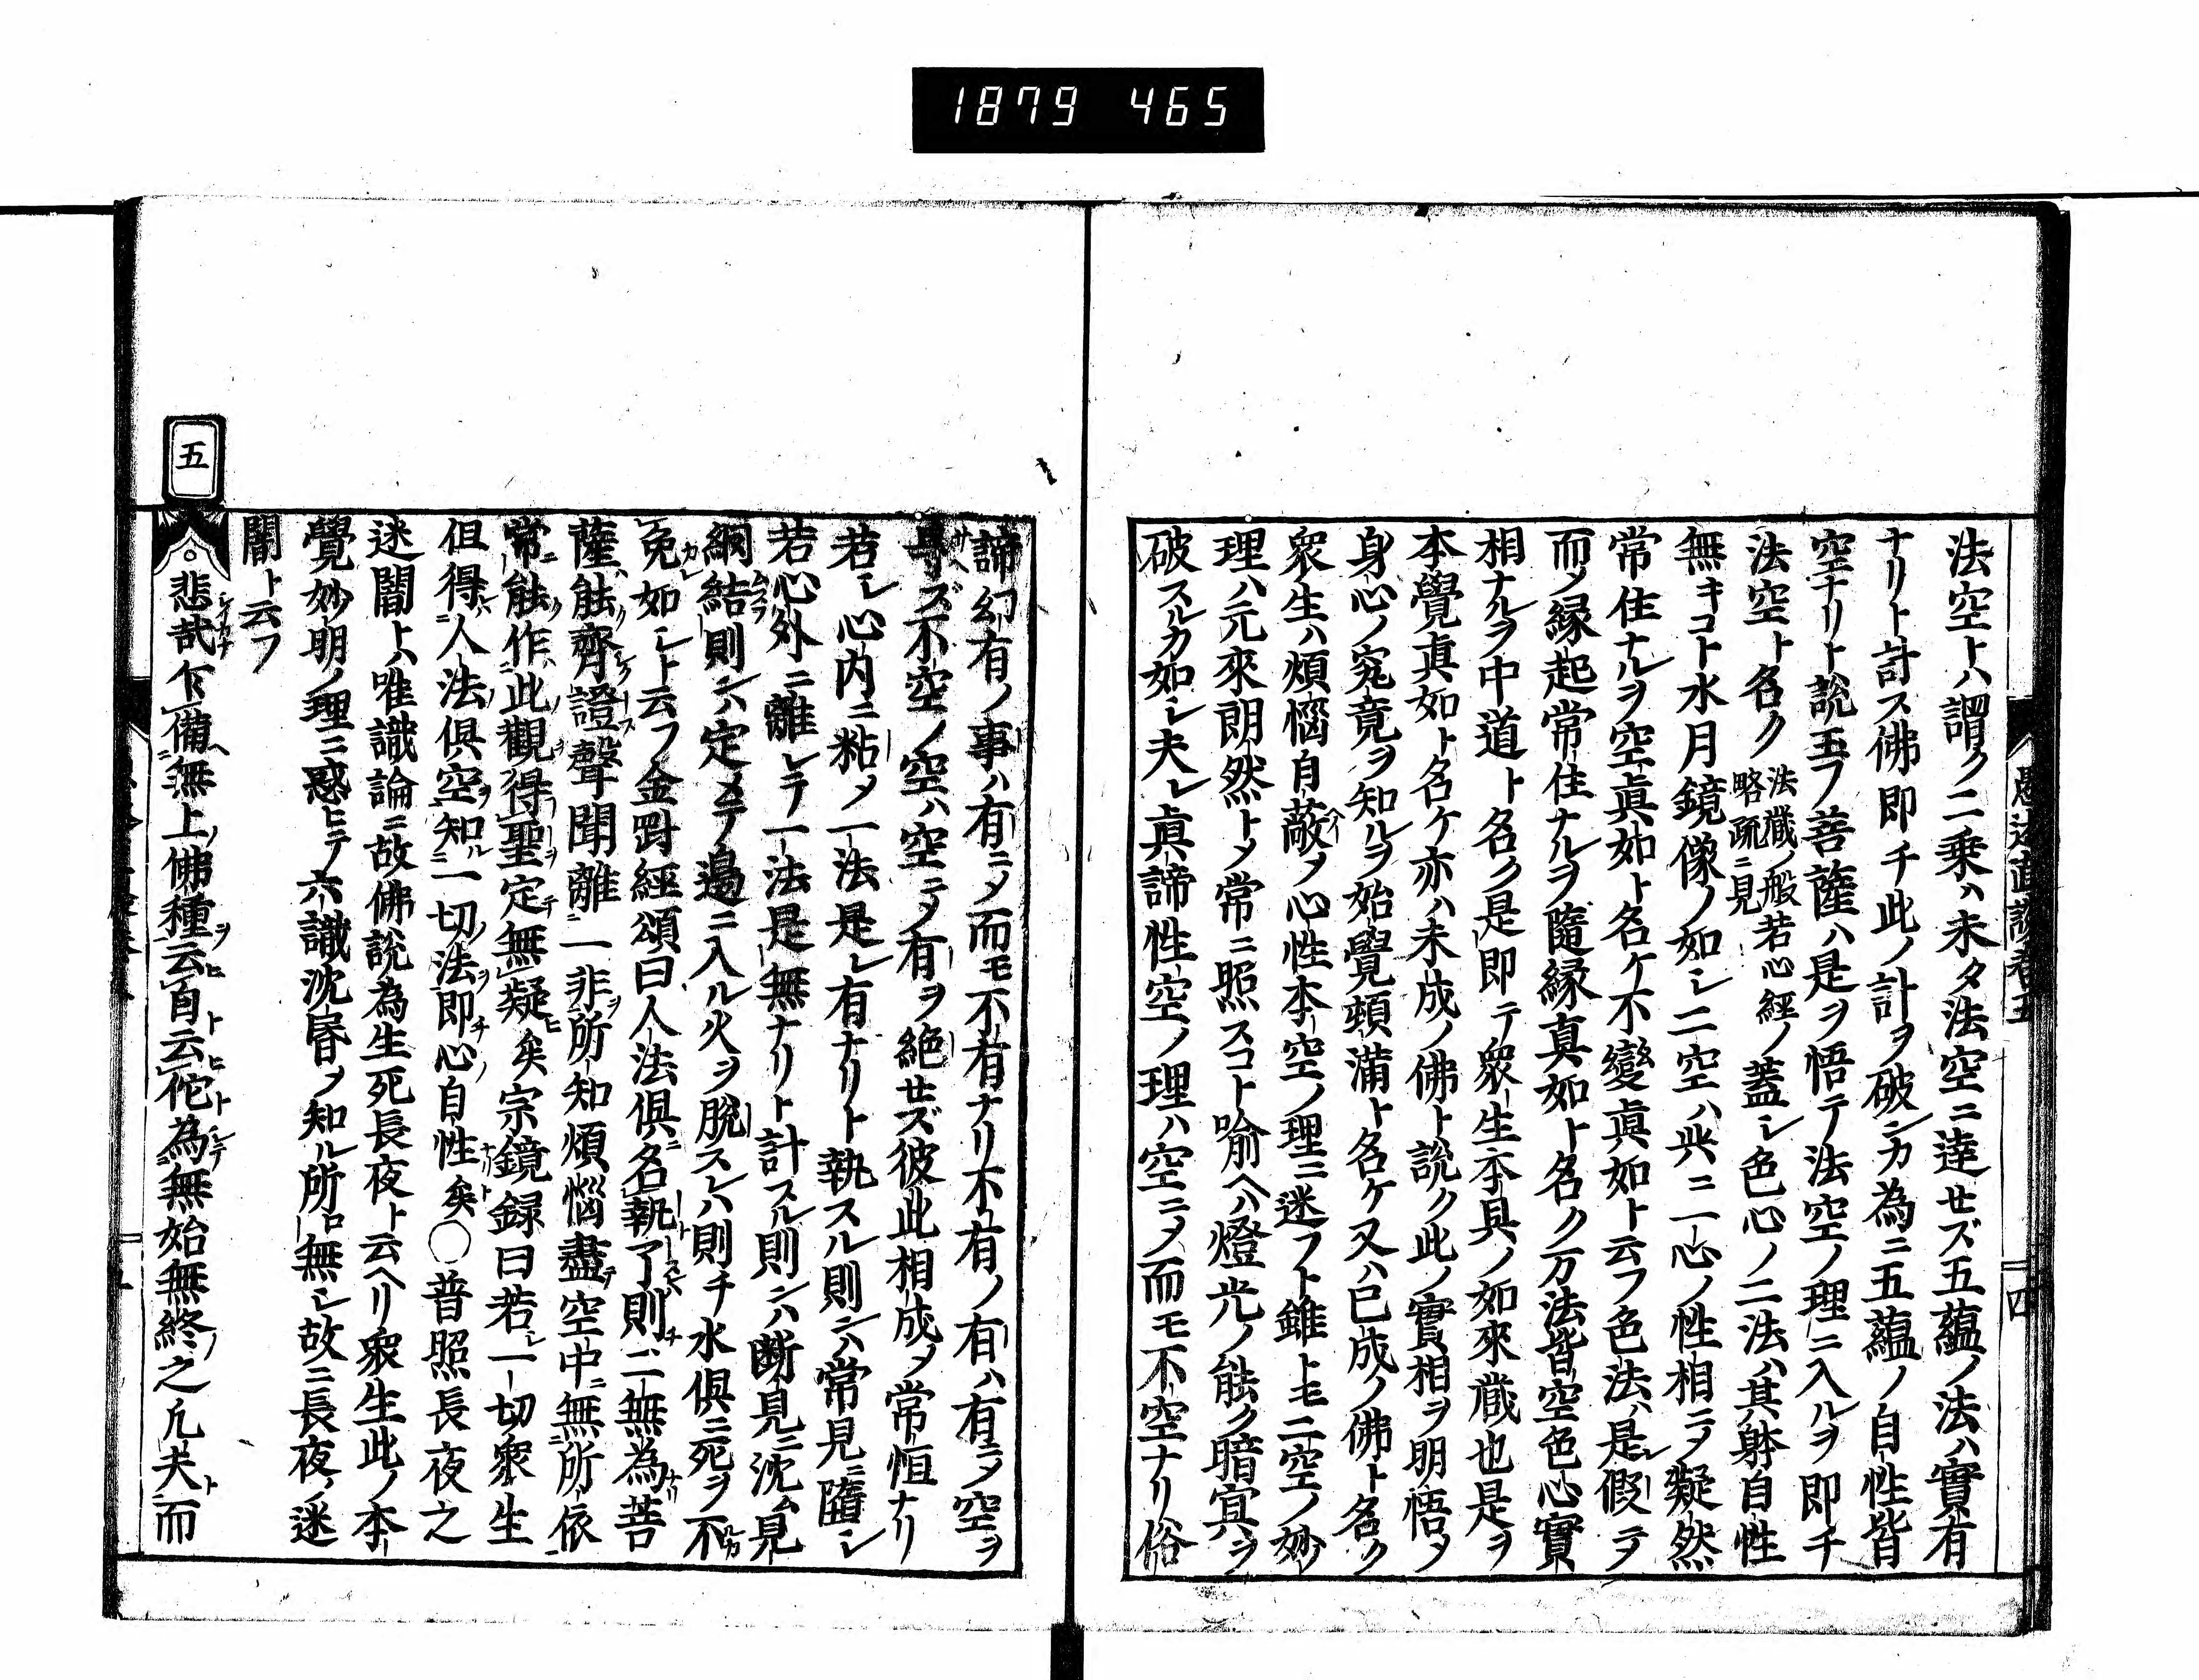 1879 465
法空トハ謂ク二乗ハ未タ法空ニ達セズ五蘊ノ法ハ實有
ナリト計ス佛即チ此ノ計ヲ破シカ為ニ五蘊ノ自性皆
空ナリト說玉フ菩薩ハ是ヲ悟テ法空ノ理ニ入ルヲ即チ
法空ト名ク法藏ノ般若心經ノ略疏ニ見蓋シ色心ノ二法ハ其躰自性
無キコト水月鏡像ノ如シ二空ハ唯ニ一心ノ性相ニメ凝然
常住ナルヲ空眞如ト名ケ不變眞如ト云フ色法ハ是レ假ニヲ
而メ縁起常住ナルヲ隨縁真如ト名ク万法皆空色心實
相ナルヲ中道ト名ク是即テ衆生本具ノ如來藏也是ヲ
本覺眞如ト名ケ亦ハ未成ノ佛ト說ク此ノ實相ヲ明悟メ
身心ノ究竟ヲ知ルヲ始覺頓滿ト名ケ又ハ已成ノ佛ト名ク
衆生ハ煩惱自蔽メ心性本空ノ理ニ迷フト雖トモ二空ノ妙
理ハ元來朗然トメ常ニ照スコト喩ヘハ燈光ノ能ク暗冥ヲ
破スルカ如シ夫レ眞諦性空ノ理ハ空ニメ而モ不空ナリ俗
諦幻有ノ事ハ有ニメ而モ不有ナリ不有ノ有ハ有ニメ空ヲ
ズ不空ノ空ハ空ニメ有ヲ絶セズ彼此相成メ常恒ナリ
若シ心内ニ粘メ一法是レ有ナリト執スル則ンハ常見ニ墮シ
若心外ニ離レテ一法是無ナリト計スル則ンハ断見ニ沈ム見
網結則ンハ定メテ邊ニ入ル火ヲ脫スレハ則チ水俱ニ死ヲ不
免如シト云フ金剛經頌曰人法俱名執了則二無為菩
薩能齊證聲聞離一非所知煩惱盡空中無所依
常能作此觀得聖定無疑矣宗鏡録曰若一切衆生
但得人法俱空知一切法即心自性矣〇普照長夜之
迷闇トハ唯識論ニ故佛說為生死長夜ト云ヘリ衆生此ノ本
覺妙明ノ理ニ惑ヒテ六識沈昏メ知ル所ロ無シ故ニ長夜ノ迷
闇ト云フ
五
悲哉乍備無上佛種云自云佗為無始無終之凡夫而